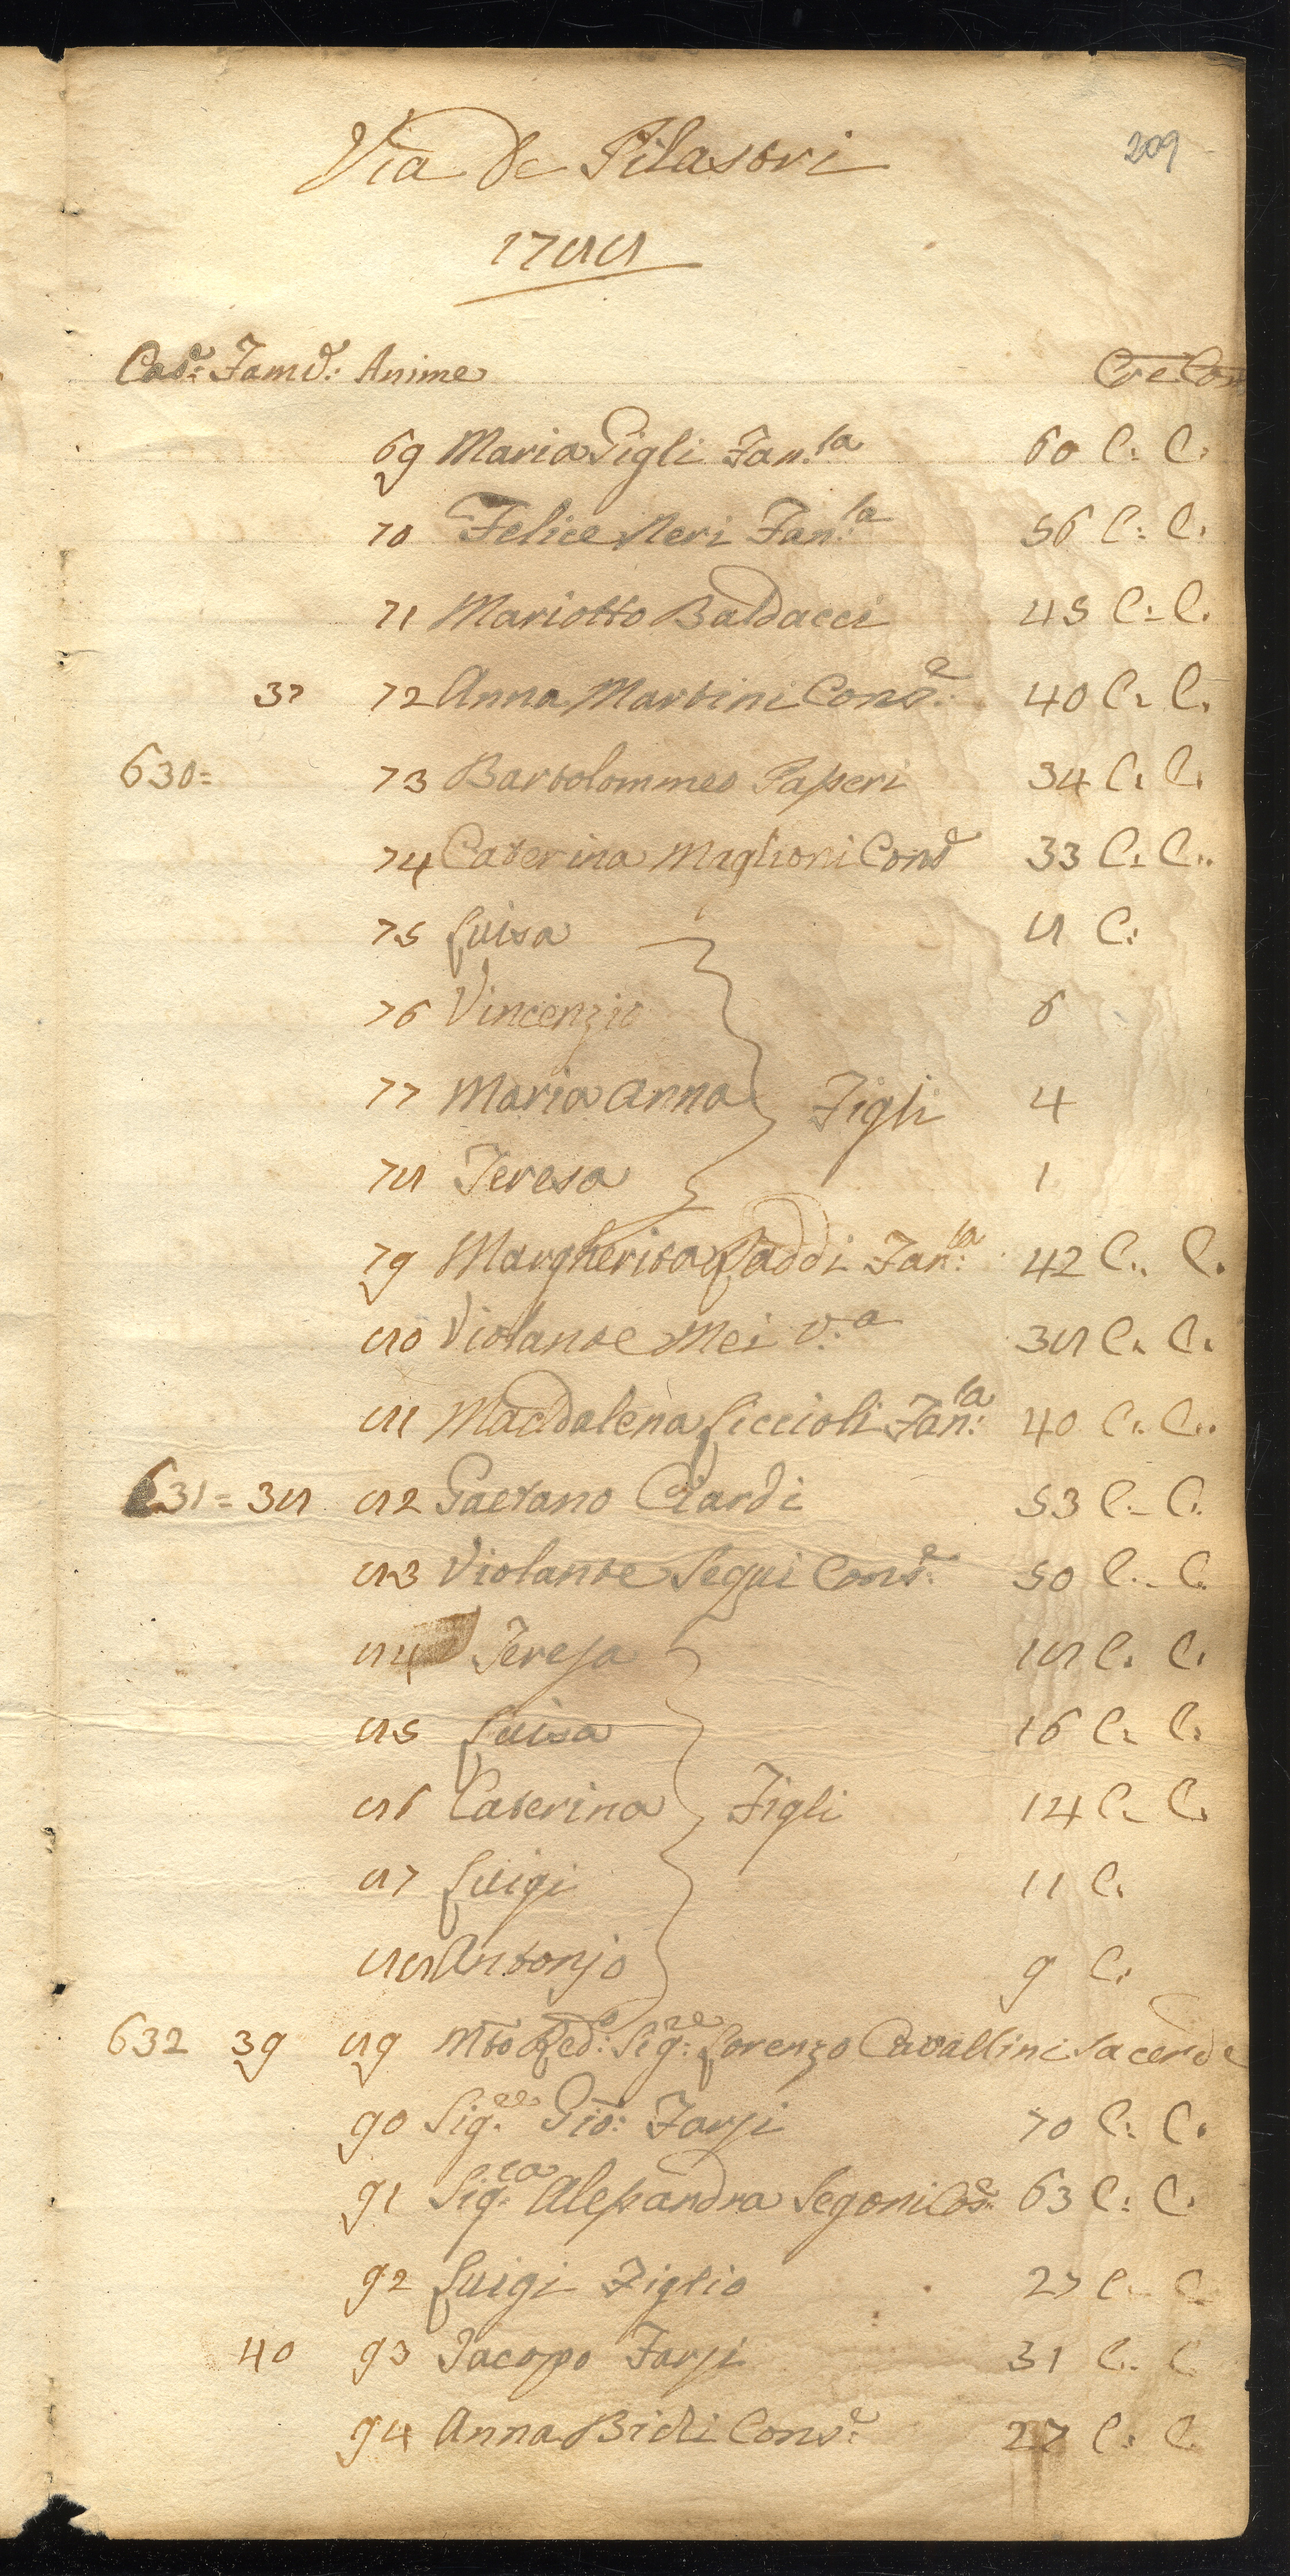 209
Via de Pilastri
1788
Cas.e Fam.e Anime Cre Com
69 Maria Gigli Fan.la 60 C. C.
70 Felice Neri Fan.la 56 C. C.
71 Mariotto Baldacci 45 C. C.
37 72 Anna Martini Cons.e 40 C. C.
630= 73 Bartolommeo Passeri 34 C. C.
74 Caterina Maglioni Cons.e 33 C. C.
75 Luisa 8 C.
76 Vincenzio 6
77 Maria Anna Figli 4
78 Teresa 1
79 Margherita Faddi Fan.la 42 C. C.
80 Violante Mei V.a 38 C. C.
81 Maddalena Liccioli Fan.la 40 C. C.
631= 38 82 Gaetano Ciardi 53 C. C.
83 Violante Segui Cons.e 50 C. C.
84 Teresa 18 C. C.
85 Luisa 16 C. C.
86 Caterina Figli 14 C. C.
87 Luigi 11 C.
88 Antonjo 9 C.
632 39 89 Mto Red.o Sig.re Lorenzo Cavallini Sacerde
90 Sig.re Gio: Farsi 70 C. C.
91 Sig.ra Alessandra Segoni Cos.e 63 C. C.
92 Luigi Figlio 27 C. C.
40 93 Jacopo Farsi 31 C. C
94 Anna Bidi Cons.e 27 C. C